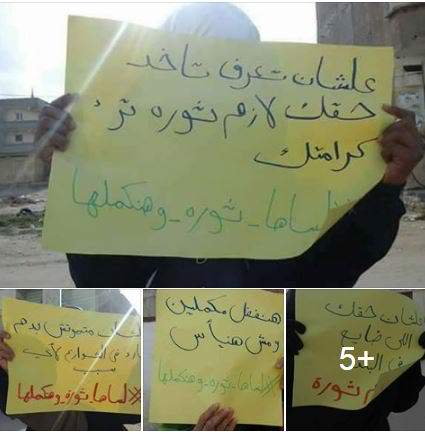 علشان تعرف تاخد
حقك لازم ثوره ترد
كرامتك
لساها_ثوره_وهنكملها
متموتش بدم
بارد فى الشوارع لأى
سبب
لساها_ثورة_وهنكملها
هنفضل مكملين
ومش هنيأس
لساها_ثوره_وهنكملها
علشان حقك
اللى ضايع
فى البلد
ثورة
5+